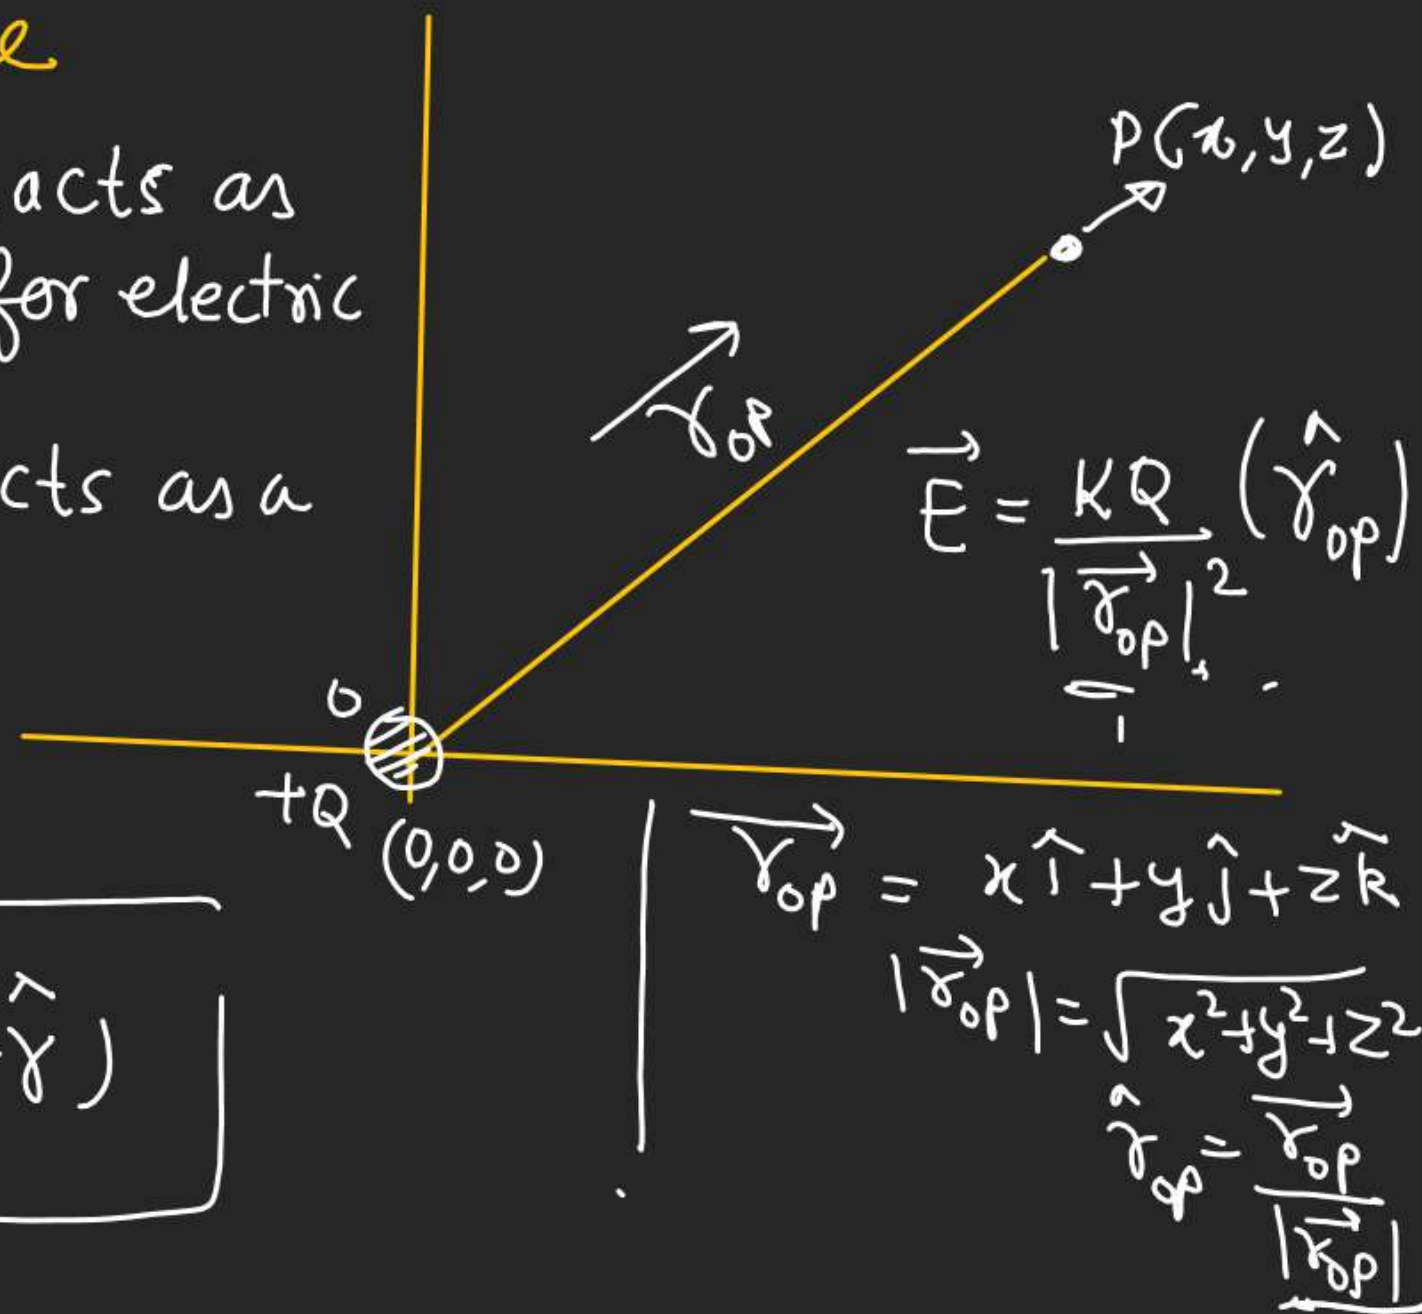 e
acts as
for electric
cts as a
P(x, y, z)
→
r_op
→
E = KQ / |r⃗_op|² (r̂_op)
O
+Q (0,0,0)
r̂ )
r⃗_op = x î + y ĵ + z k̂
|r⃗_op| = √x²+y²+z²
r̂_op = r⃗_op / |r⃗_op|